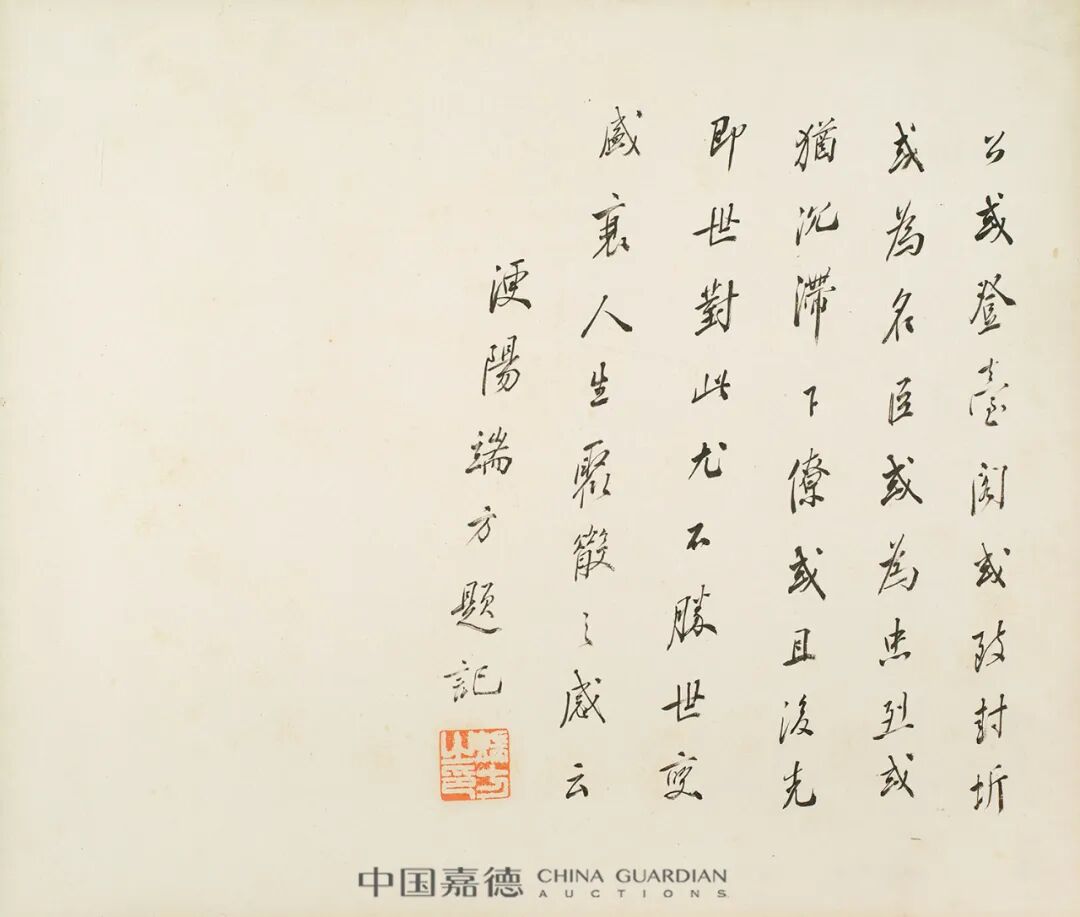 公或登臺閣或致封圻
或為名臣或為忠烈或
猶沉滯下僚或且後先
即世對此尤不勝世變
盛衰人生聚散之感云
浭陽端方題記
端方之印
中国嘉德 CHINA GUARDIAN
AUCTIONS